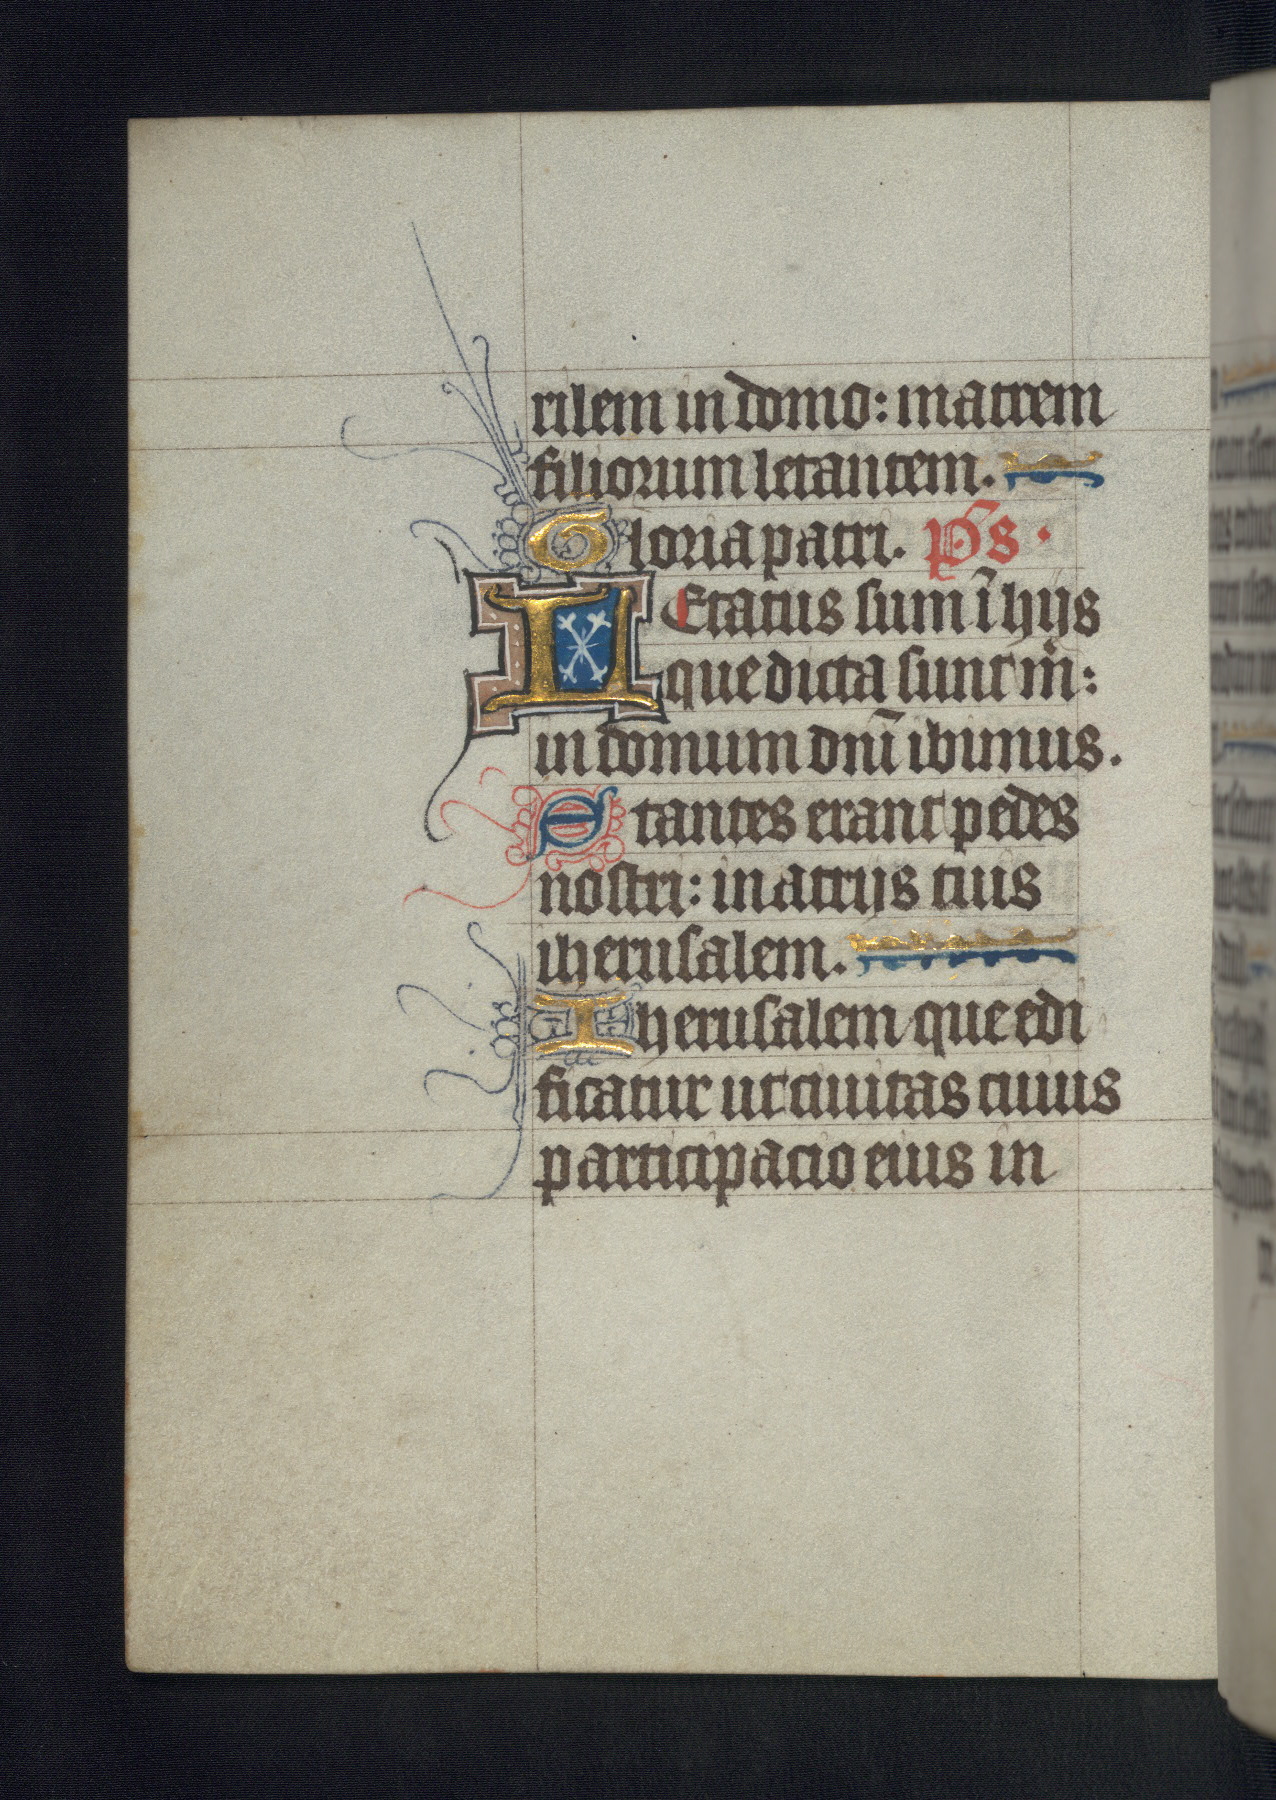 rilem in domo: matrem
filiorum letantem.
Gloria patri. p̄s.
LEtatus sum ī hijs
que dicta sunt m̄:
in domum dnī ibimus.
Stantes erant pedes
nostri: in atrijs tuis
iherusalem.
Iherusalem que edi
ficatur ut ciuitas cuius
participacio eius in